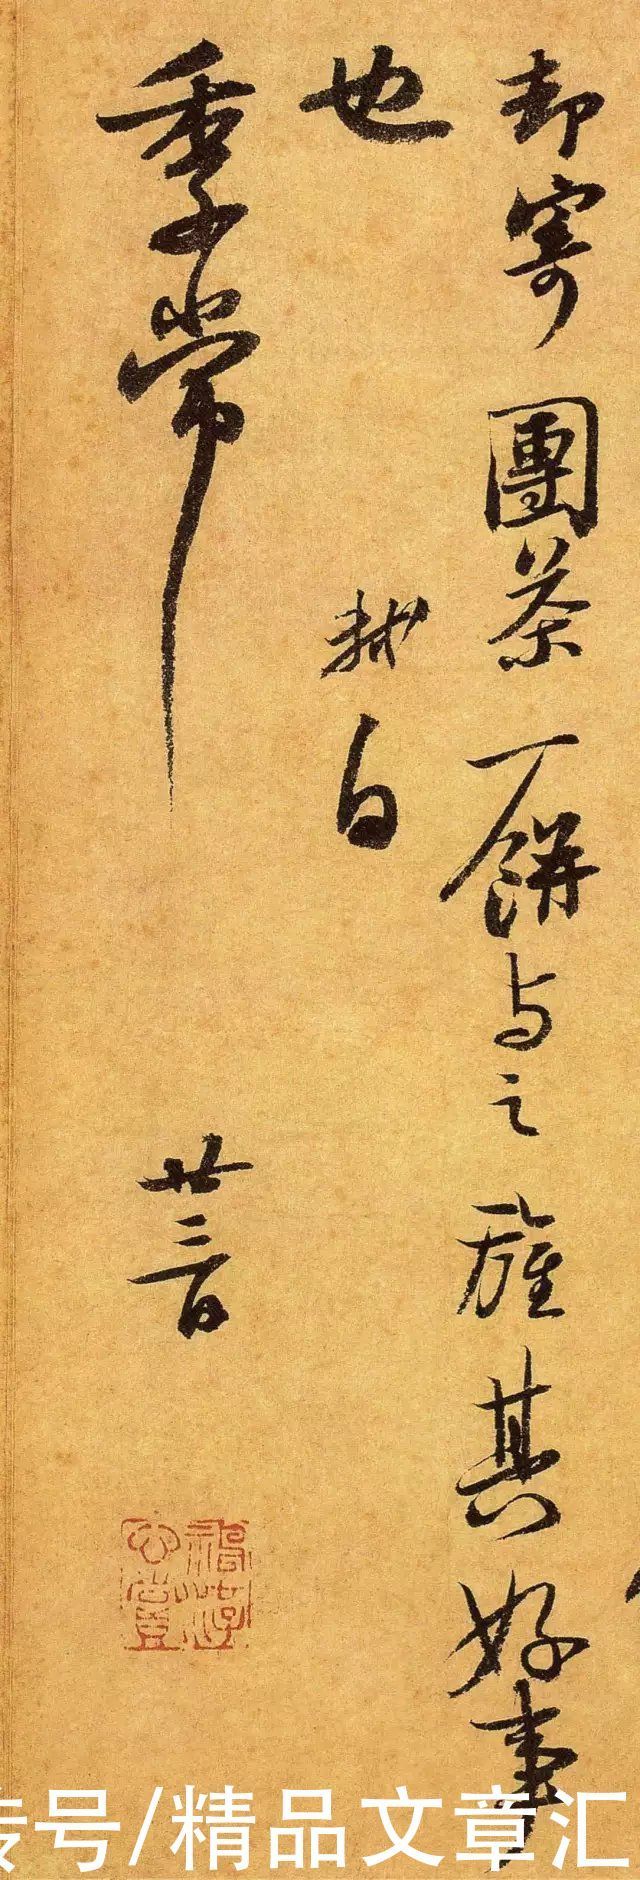 却寄團茶一餅与之旌其好事
也
軾白
季常
廿三日
传号/精品文章汇